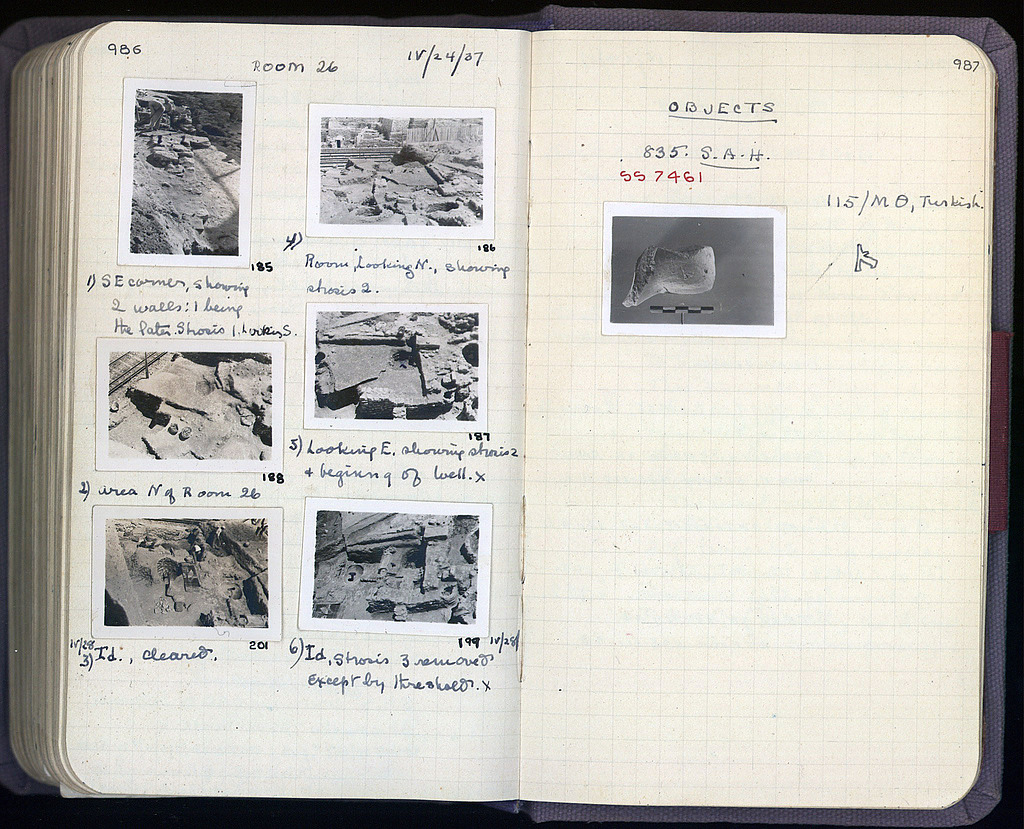 986
ROOM 26
IV/24/37
185
1) SE corner, showing
2 walls: 1 being
the later. Strosis 1. Looking S.
188
2) Area N of Room 26
201
IV/28
3) Id., cleared.
186
4) Room, Looking N., showing
strosis 2.
187
5) Looking E. showing strosis 2
+ beginng of well. x
199 IV/28/
6) Id, strosis 3 removed
except by threshold. x
987
OBJECTS
835. S.A.H.
SS 7461
115/ΜΘ, Turkish.